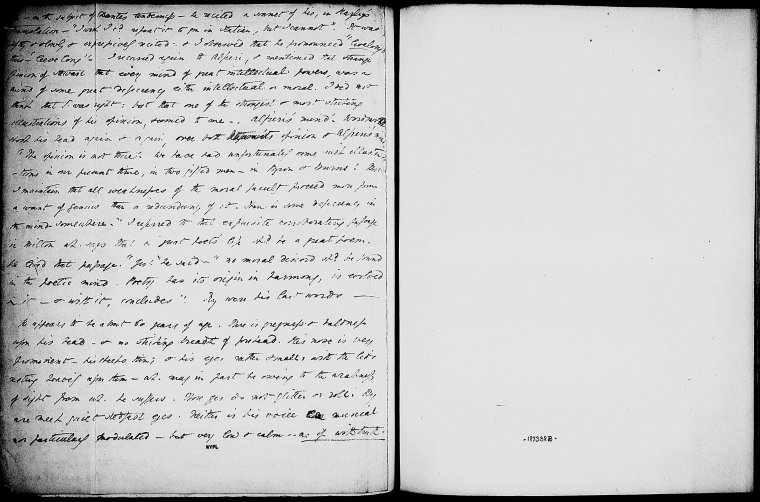 on the subject of Dante's tenderness – he recited a sonnet of his, in Hayley's
translation – "I wish I c.d repeat it to you in Italian, but I cannot". It was
& slowly & expressively recited. & I observed that he pronounced
this. I recurred again to Alfieri, & mentioned that strange
opinion of Stewart that every mind of great intellectual powers, was a
mind of some great deficiency either intellectual or moral. I did not
think that S. was right: but that one of the strongest & most striking
illustrations of his opinion, seemed to me .. Alfieri's mind. Wordsworth
shook his head again & again, over both Stewart's opinion & Alfieri's mind
"The opinion is not true. We have had unfortunately some such illustra-
-tions in our present time, in two gifted men – in Byron & Burns! But
I maintain that all weaknesses of the moral faculty proceed more from
a want of genius than a redundancy of it. There is some deficiency in
the mind somewhere." I referred to that exquisite corroborating passage
in Milton wh. says that a great poet's life sh.d be a great poem.
He liked that passage. "Yes!" he said – "no moral discord sh.d be found
in the poetic mind. Poetry has its origin in harmony, is evolved
in it – & with it, concludes". They were his last words —
He appears to be about 60 years of age. There is greyness & baldness
upon his head – & no striking breadth of forehead. His nose is very
prominent – his cheeks thin; & his eyes rather small, with the lids
resting heavily upon them – wh. may in part be owing to the weakness
of sight from wh. he suffers. Those eyes do not glitter or roll. They
are meek quiet & stedfast eyes. Neither is his voice musical
nor particularly modulated – but very low & calm .. as of with truth.
NYPL
-187388B-